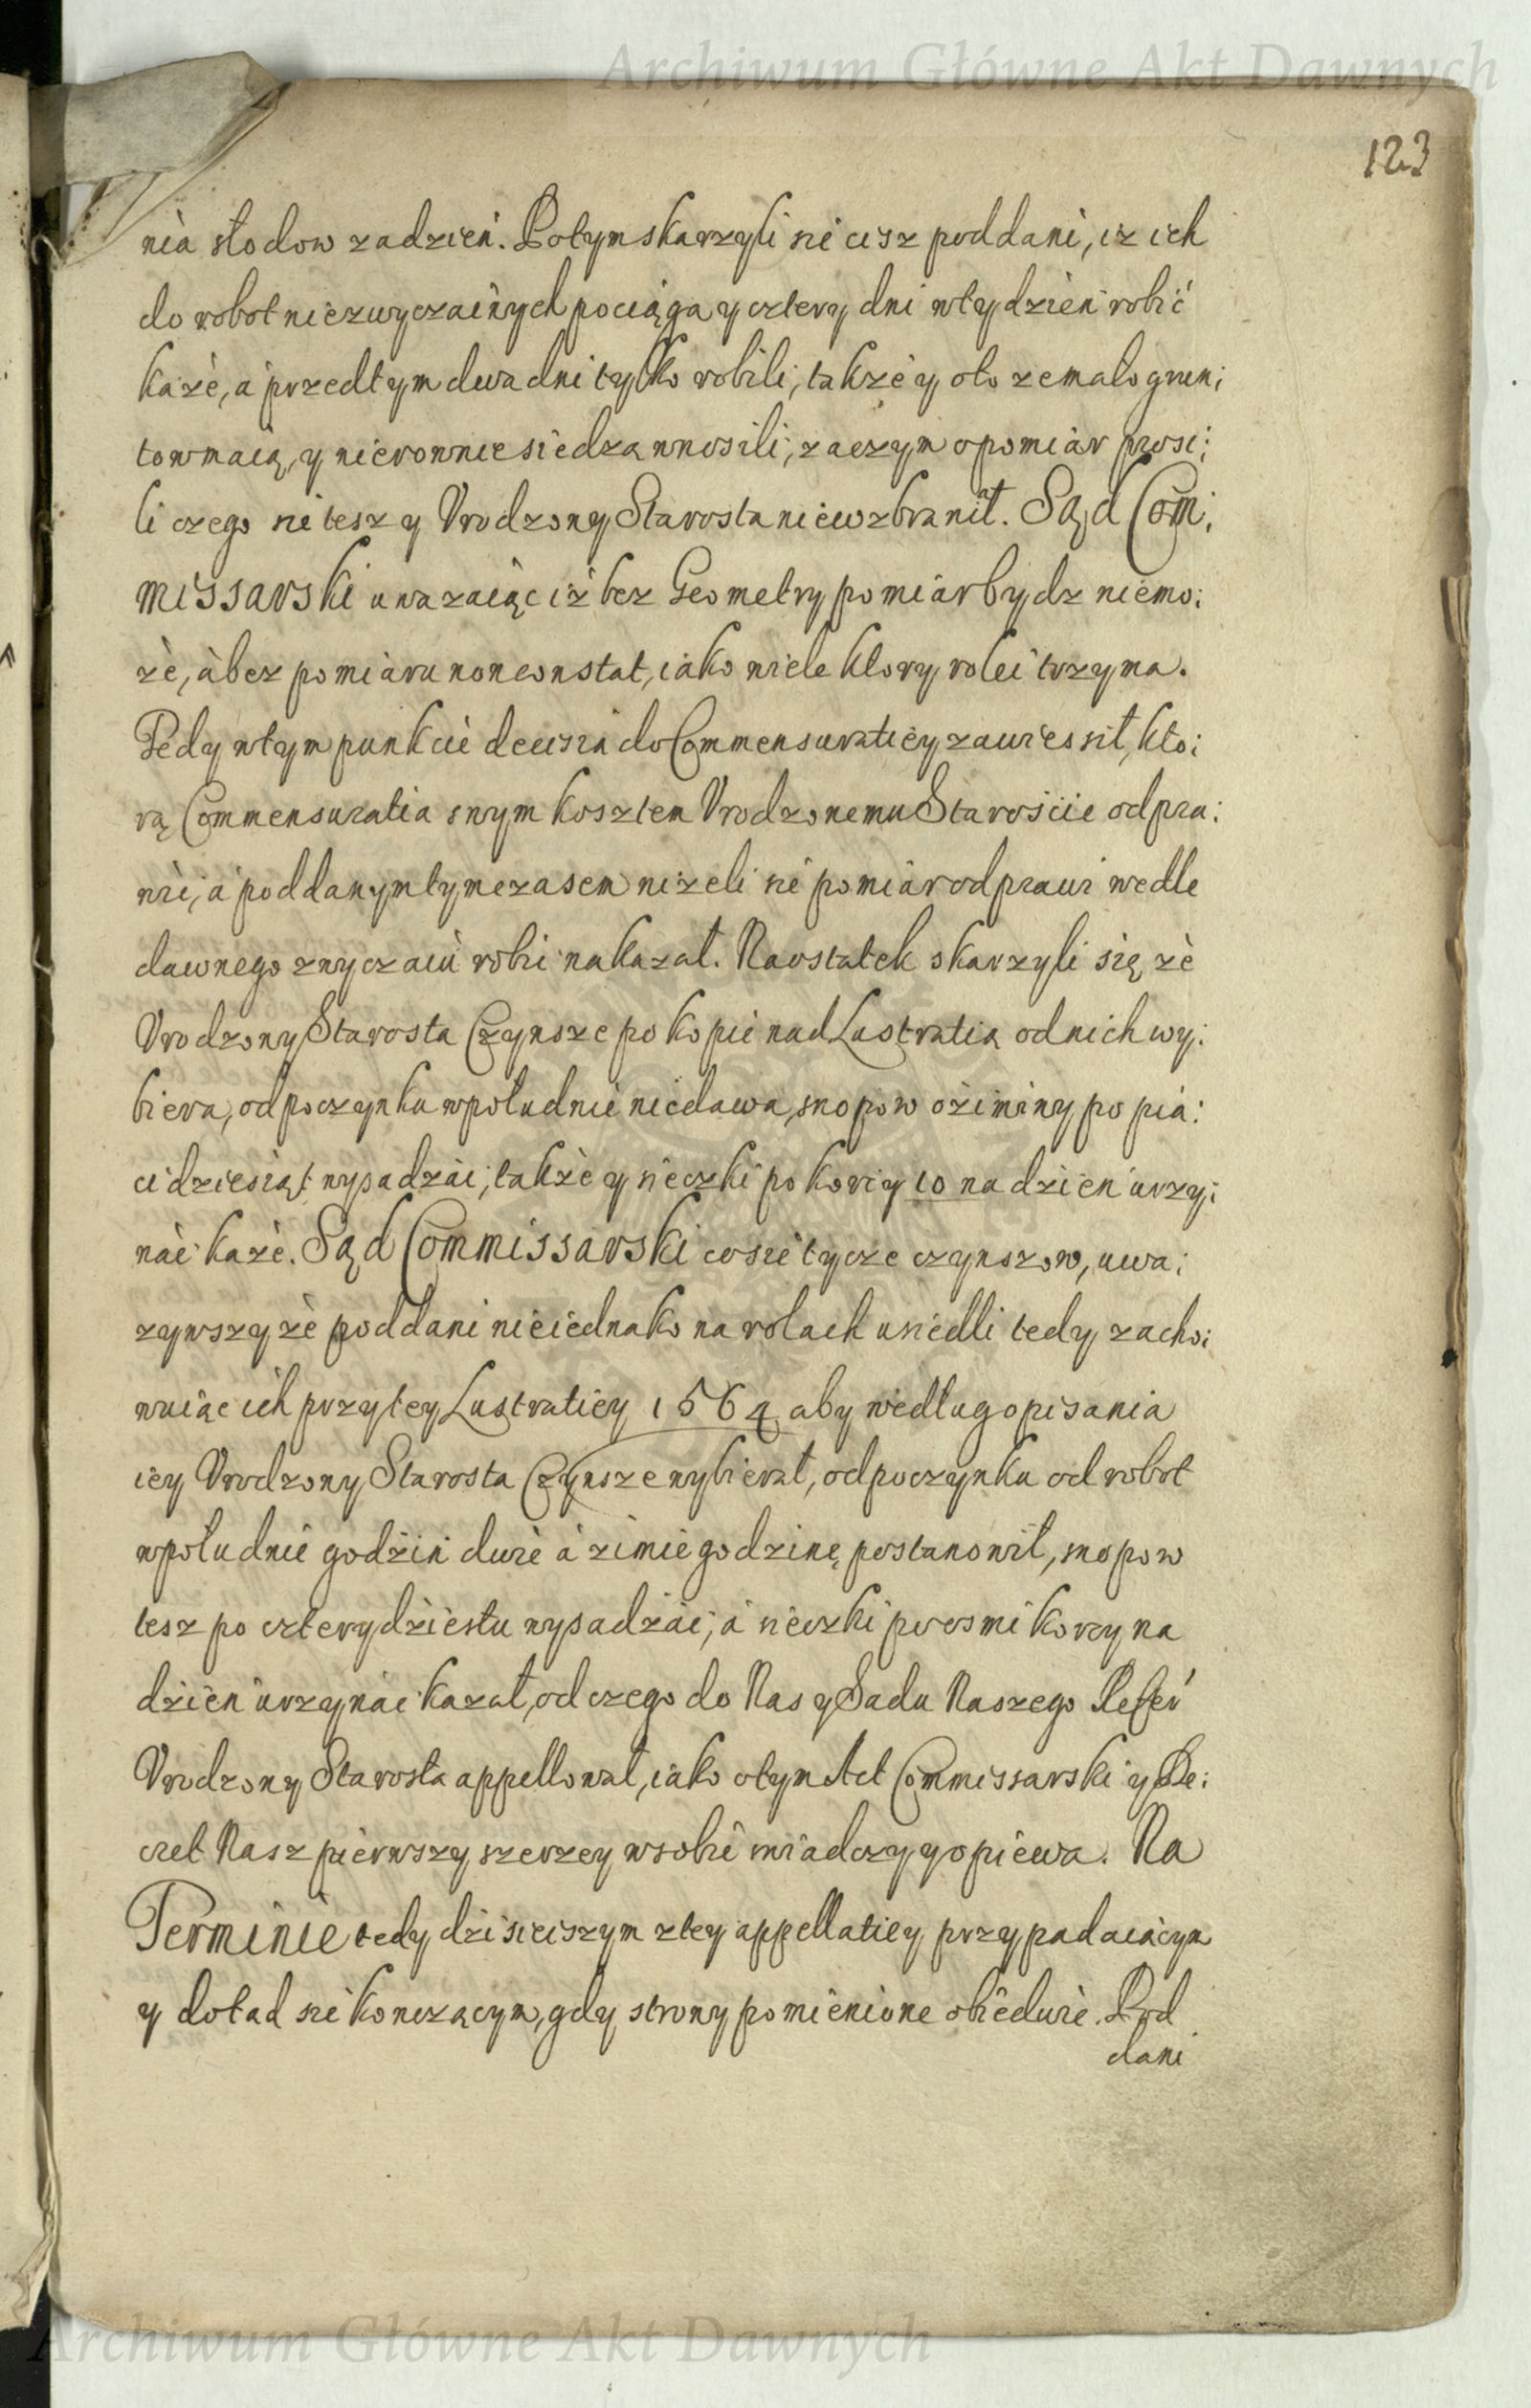 Archiwum Główne Akt Dawnych
123
nia słodow zadzień. Potym skarzyli sie cisz poddani, iz ich
do robot niezwyczainych pociąga y cztery dni wtydzień robić
każe, a przedtym dwa dni tylko robili, także y oto ze mało grun:
tow maią, y nierownie siedzą wnosili, zaczym o pomiar prosi:
li czego sie tesz y Vrodzony Starosta niewzbranił. Sąd Com:
missarski uwazaiąc iż bez Geometry pomiar bydz niemo:
że, a bez pomiaru non constat, iako wiele ktory rolei trzyma.
Tedy wtym punkcie decisia do Commensuratiey zawiessił, kto:
rą Commensuratia swym kosztem Vrodzonemu Staroście odpra:
wić, a poddanym tymczasem nizeli sie pomiar odprawi wedle
dawnego zwyczaiu robić nakazał. Naostatek skarzyli się że
Vrodzony Starosta Czynsze po kopie nad Lustratią od nich wy:
biera, odpoczynku wpołudnie niedawa, snopow oziminy po pią:
cidziesiąt wysadzać, także y sieczki po korcy 10 na dzień urzy:
nać każe. Sąd Commissarski co sie tycze czynszow, uwa:
zywszy że poddani nieiednako na rolach usiedli tedy zacho:
wuiąc ich przy tey Lustratiey 1564 aby według opisania
iey Vrodzony Starosta Czynsze wybierał, odpoczynku od robot
wpołudnie godzin dwie a zimie godzinę postanowił, snopow
tesz po czterydziestu wysadzać, a sieczki po osmi korcy na
dzień urzynać kazał, od czego do Nas y Sadu Naszego Refer
Vrodzony Starosta appellował, iako otym Act Commissarski y De:
cret Nasz pierwszy szerzey wsobie swiadczy y opiewa. Na
Terminie tedy dzisieiszym ztey appellatiey przypadaiącym
y dotad sie konczącym, gdy strony pomienione obiedwie. Pod
dani
Archiwum Główne Akt Dawnych